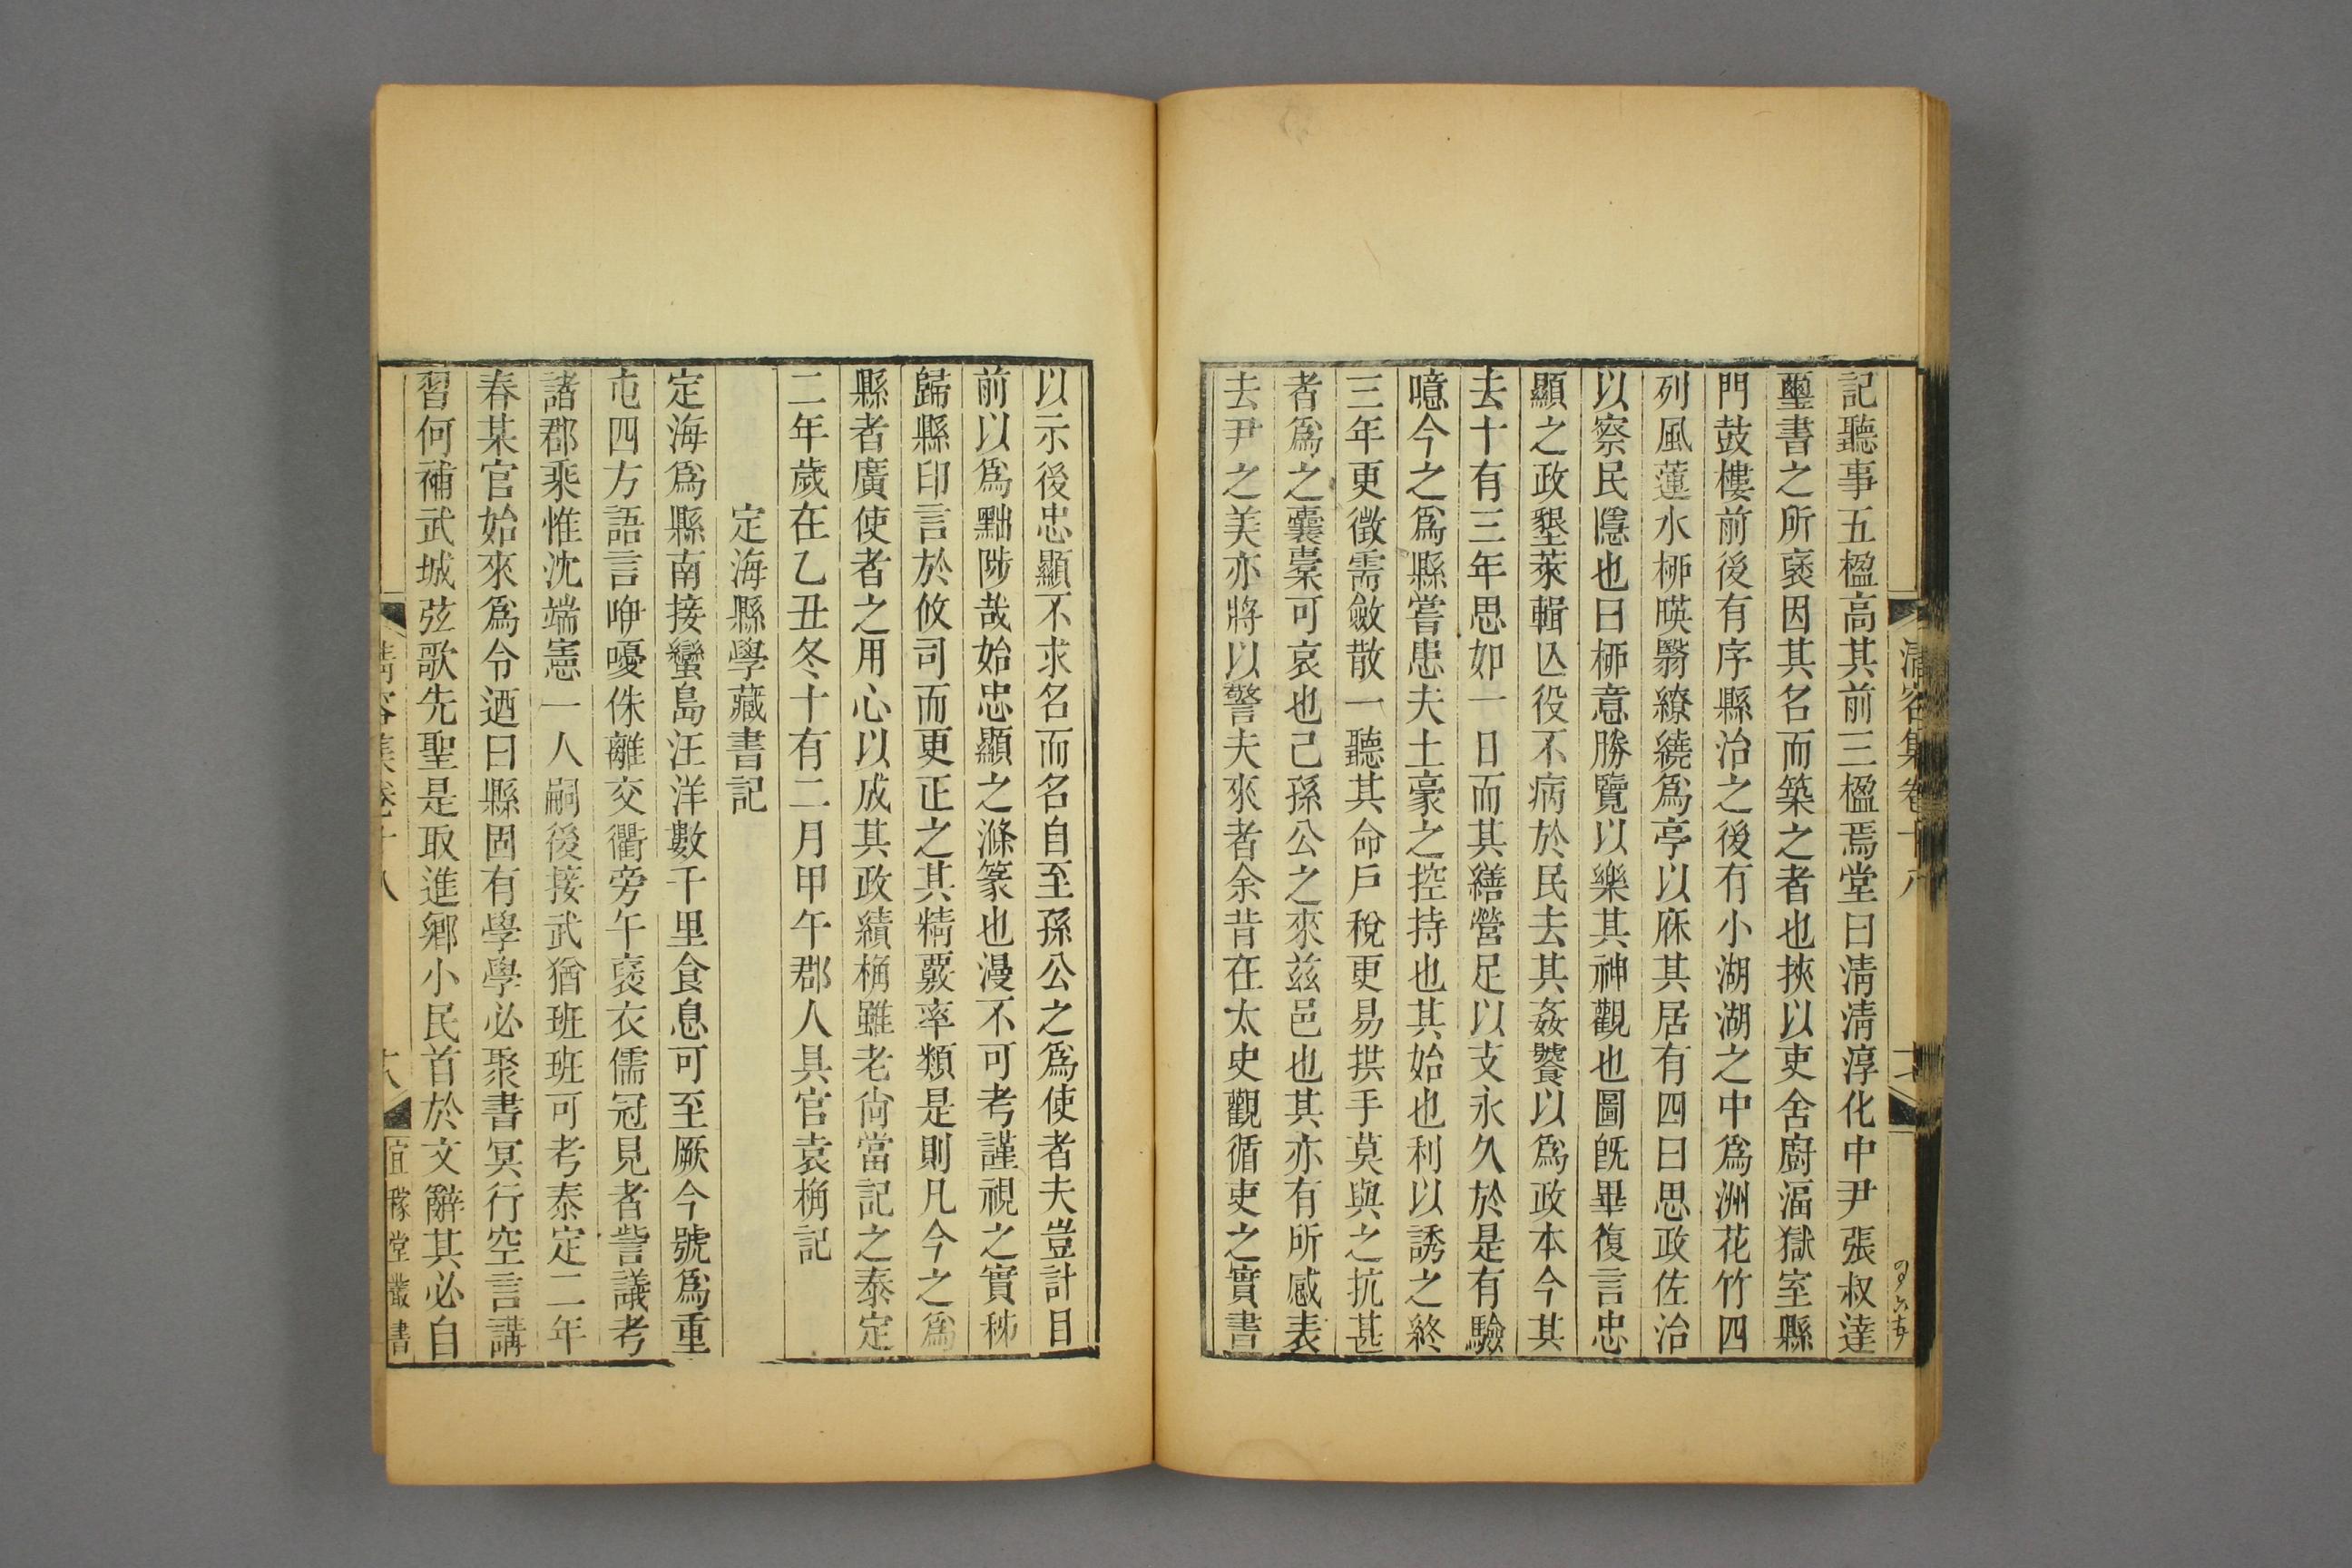 記聽事五楹高其前三楹焉堂曰淸淸淳化中尹張叔達
璽書之所襃因其名而築之者也挾以吏舍廚湢獄室縣
門鼓樓前後有序縣治之後有小湖湖之中爲洲花竹四
列風蓮水桺暎翳繚繞爲亭以庥其居有四曰思政佐治
以察民隱也曰桺意勝覽以樂其神觀也圖旣畢復言忠
顯之政墾萊輯亾役不病於民去其姦饕以爲政本今其
去十有三年思如一日而其繕營足以支永久於是有驗
噫今之爲縣嘗患夫土豪之控持也其始也利以誘之終
三年更徵需斂散一聽其命戶稅更易拱手莫與之抗甚
者爲之囊橐可哀也己孫公之來兹邑也其亦有所感表
去尹之美亦將以警夫來者余昔在太史觀循吏之實書
淸容集卷十八
以示後忠顯不求名而名自至孫公之爲使者夫豈計目
前以爲黜陟哉始忠顯之滌篆也漫不可考謹視之實秭
歸縣印言於攸司而更正之其精覈率類是則凡今之爲
縣者廣使者之用心以成其政績桷雖老尙當記之泰定
二年歲在乙丑冬十有二月甲午郡人具官袁桷記
定海縣學藏書記
定海爲縣南接蠻島汪洋數千里食息可至厥今號爲重
屯四方語言咿嚘侏離交衢旁午襃衣儒冠見者訾議考
諸郡乘惟沈端憲一人嗣後接武猶班班可考泰定二年
春某官始來爲令迺曰縣固有學學必聚書冥行空言講
習何補武城弦歌先聖是取進鄉小民首於文辭其必自
淸容集卷十八
十八
宜稼堂叢書